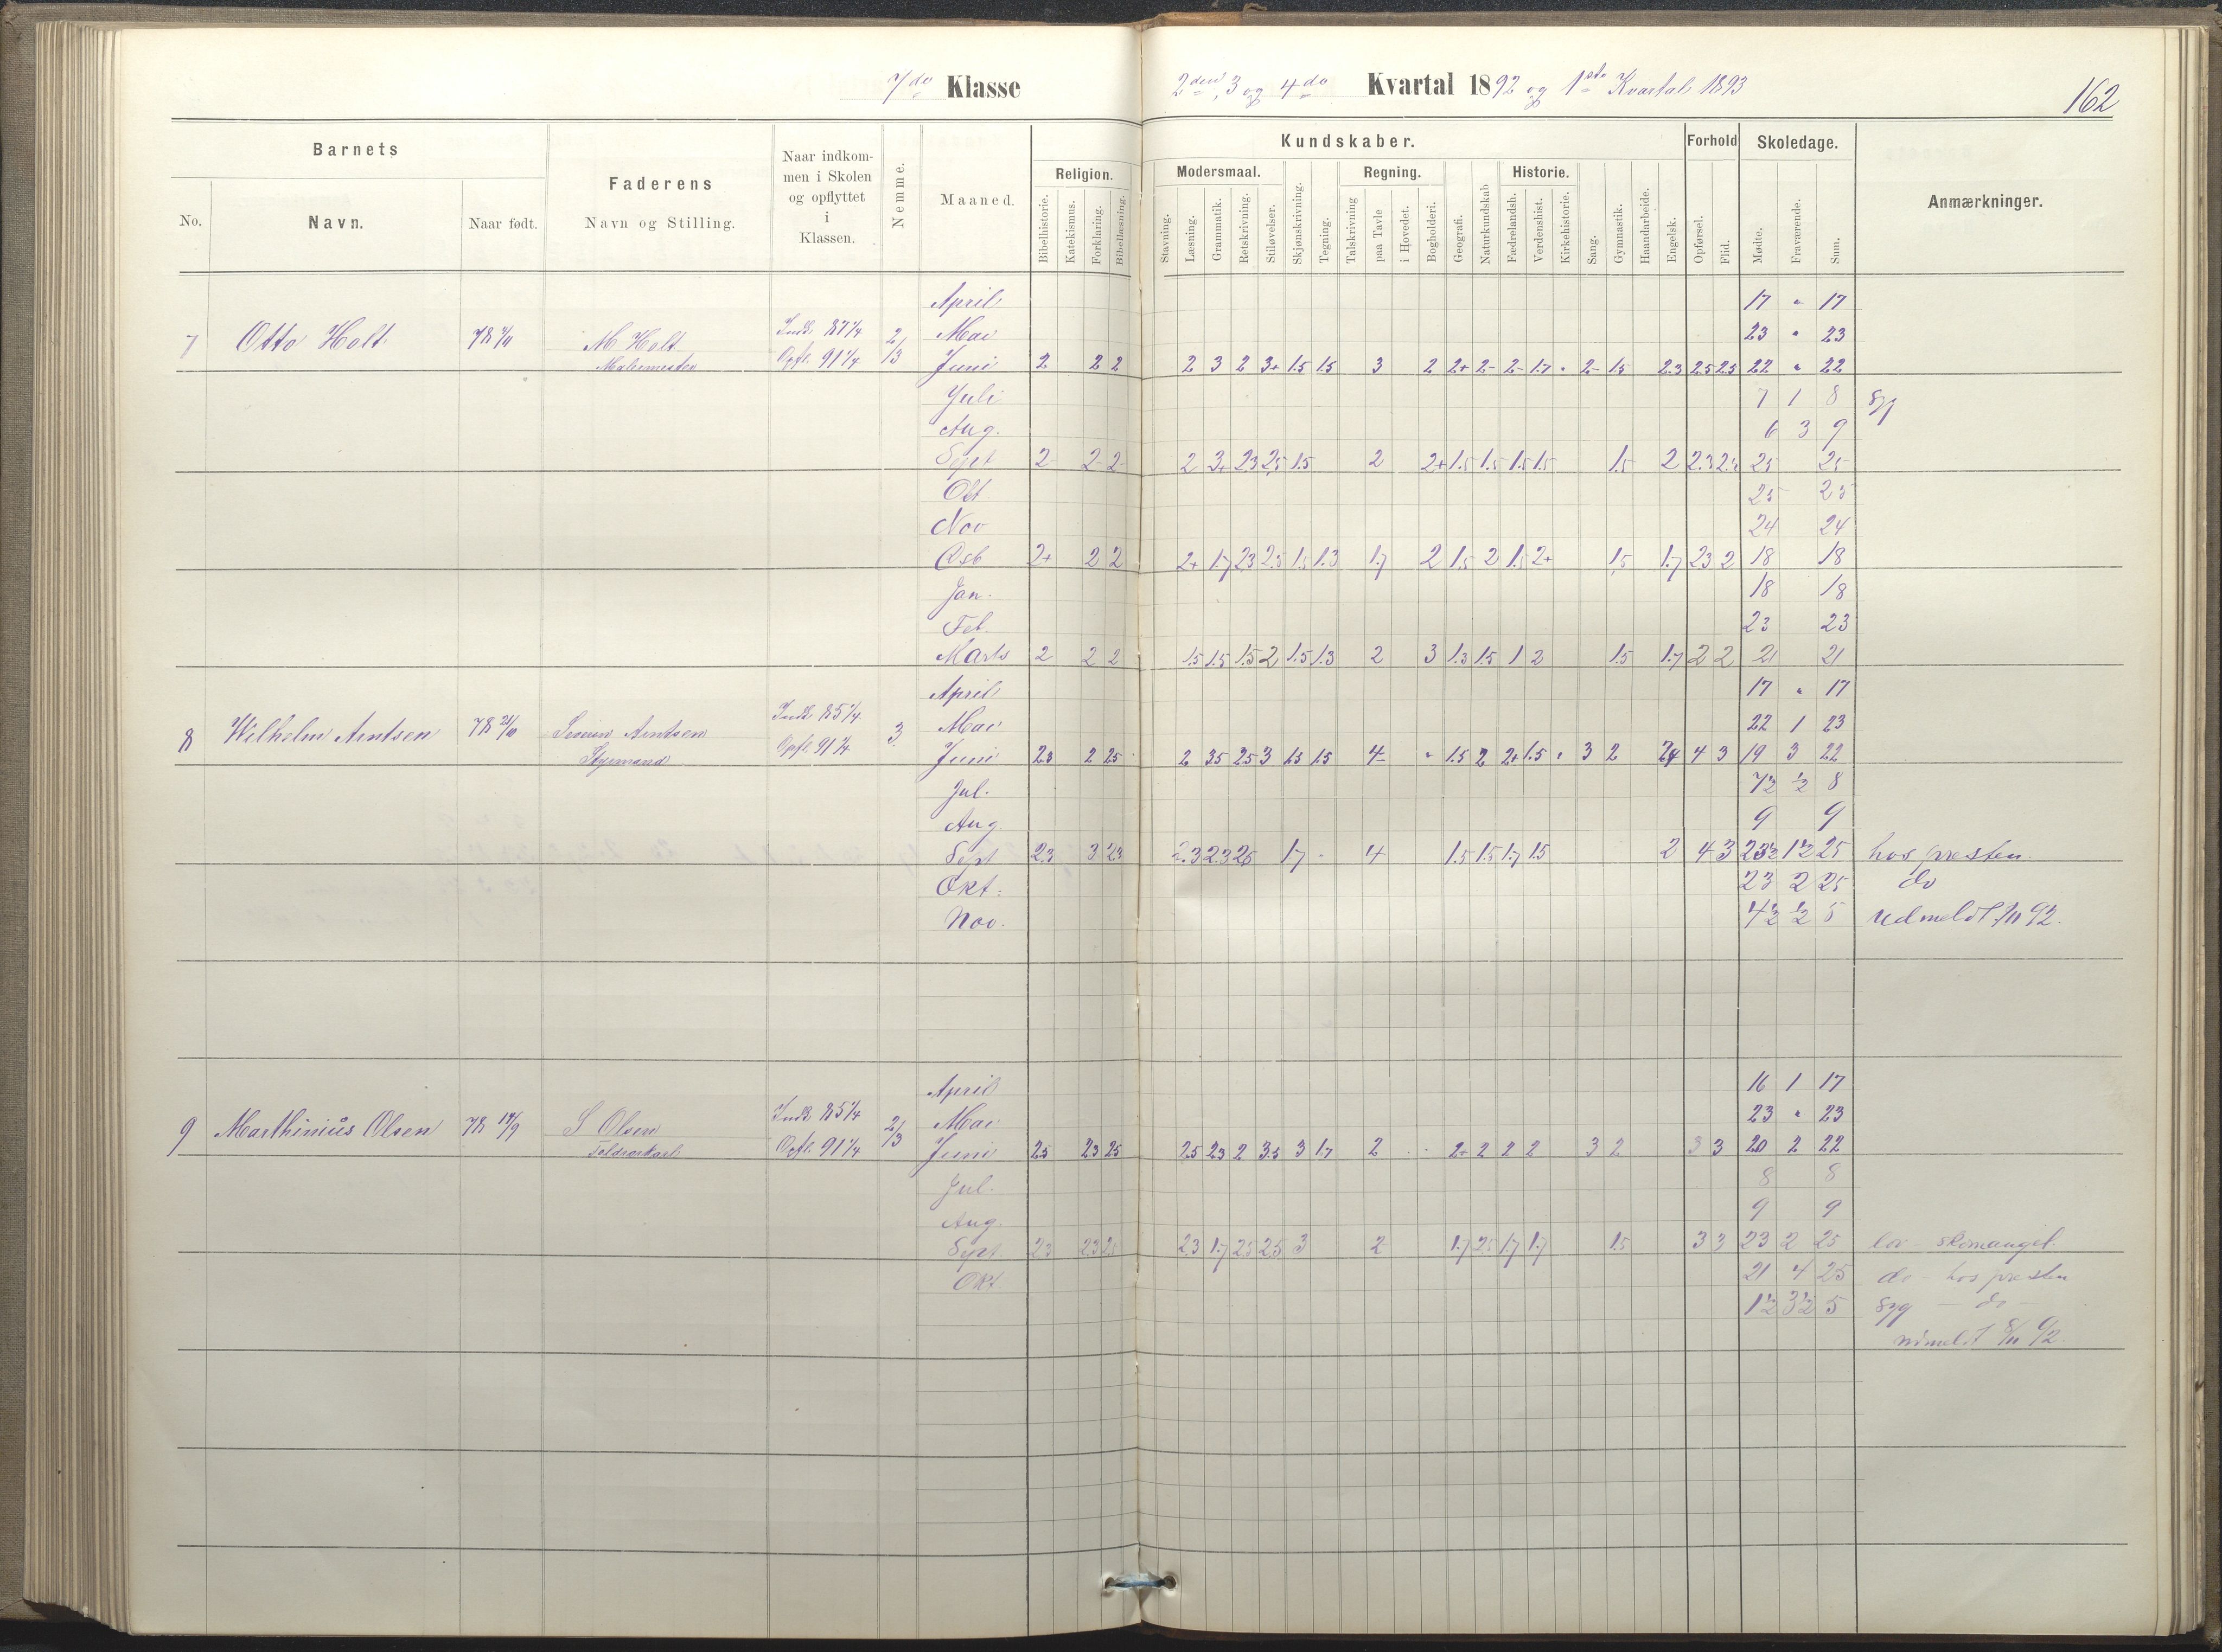 7de Klasse 2den, 3 og 4de Kvartal 1892 og 1ste Kvartal 1893
162
Barnets Faderens Naar indkommen i Skolen og opflyttet i Klassen. Nemme. Maaned. Kundskaber. Forhold Skoledage. Anmærkninger.
Religion. Modersmaal. Regning. Historie.
No. Navn. Naar født. Navn og Stilling.
Bibelhistorie. Katekismus. Forklaring. Bibellæsning. Stavning. Læsning. Grammatik. Retskrivning. Stiløvelser. Skjønskrivning. Tegning. Talskrivning paa Tavle i Hovedet. Bogholderi. Geografi. Naturkundskab Fædrelandsh. Verdenshist. Kirkehistorie. Sang. Gymnastik. Haandarbeide. Engelsk. Opførsel. Flid. Mødte. Fraværende. Sum.
April 17 " 17
7 Otto Holt M Holt Indk. 87 1/4 2/3 Mai 23 " 23
Malermester Opfl. 91 1/4 Juni 2 2 2 2 3 2 3+ 1.5 1.5 3 2 2+ 2- 2- 1.7 " 2- 1.5 2.3 2.5 2.5 22 " 22
Juli 7 1 8 syg
Aug. 6 3 9
Sept 2- 2- 2- 2 3+ 2.3 2.5 1.5 2 2+ 1.5 1.5 1.5 1.5 1.5 2 2.3 25 25
Okt 25 25
Nov 24 24
Des 2+ 2 2 2+ 1.7 2.3 2.5 1.5 1.3 1.7 2 1.5 2 1.5 2+ 1.5 1.7 2.3 2 18 18
Jan. 18 18
Feb. 23 23
Marts 2 2 2 1.5 1.5 1.5 2 1.5 1.3 2 3 1.3 1.5 1 2 1.5 1.7 2 2 21 21
April 17 " 17
8 Wilhelm Arntsen 78 Arntsen Indk. 85 1/4 3 Mai 22 1 23
Styrmand Opfl. 91 1/4 Juni 2.3 2 2.5 2 3.5 2.5 3 1.5 1.5 4- " 1.5 2 2+ 1.5 " 3 2 4 3 19 3 22
Jul. 7½ ½ 8
Aug. 9 9
Sept 2.3 3 2.3 2.3 2.3 2.5 1.7 4 1.5 1.5 1.7 1.5 2 4 3 23½ 1½ 25 hos presten
Okt: 23 2 25 do
Nov. 4½ ½ 5 udmeldt 92.
April 16 1 17
9 Marthinius Olsen 78 S Olsen Indk 85 1/4 2/3 Mai 23 " 23
Opfl. 91 1/4 Juni 2.5 2.3 2.5 2.5 2.3 2 3.5 3 1.7 2 2- 2 2 2 3 2 3 3 20 2 22
Jul. 8 8
Aug. 9 9
Sept. 2.3 2.3 2.3 1.7 2.5 2.5 3 2 1.7 2.5 1.7 1.7 1.5 3 3 23 2 25 lov - skomangel.
Okt. 21 4 25 do - hos presten
1½ 3½ 5 syg - do -
8/11 92.